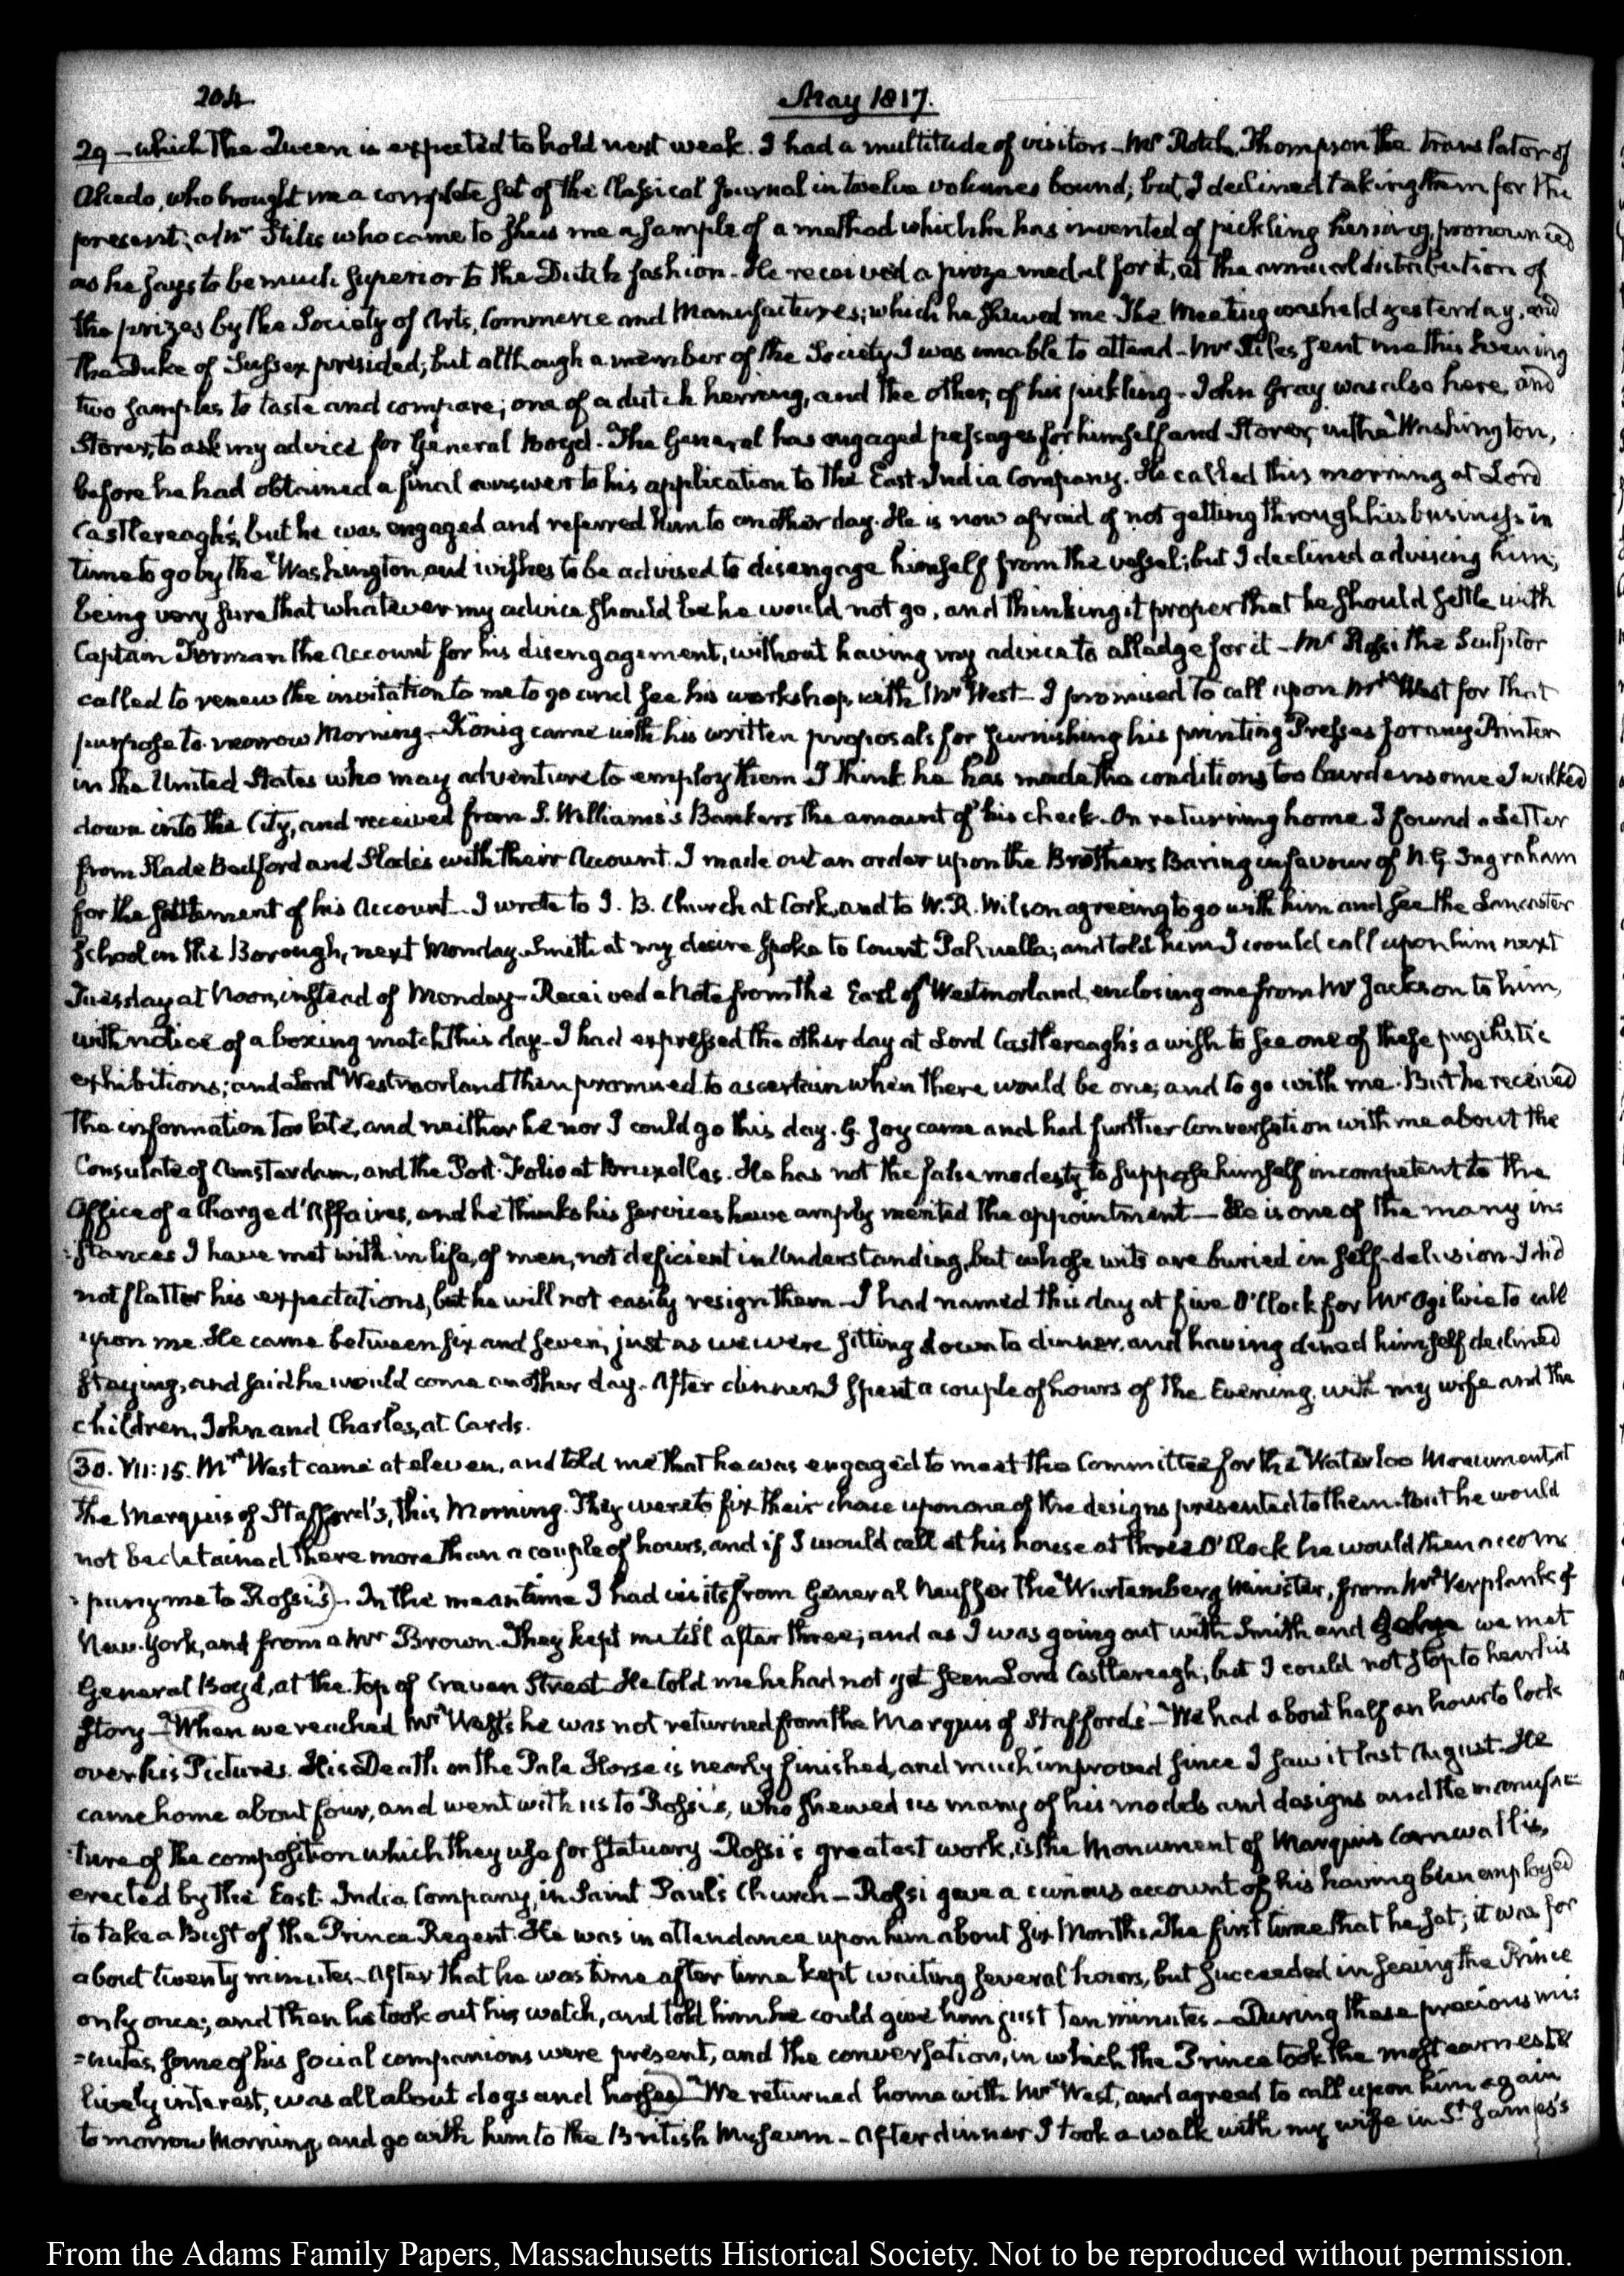 204
May 1817.
29 – which the Queen is expected to hold next week. I had a multitude of visitors – Mr Rotch, Thompson the translator of
Alcedo, who brought me a complete set of the Classical Journal in twelve volumes bound; but I declined taking them for the
present; a Mr Stiles who came to shew me a sample of a method which he has invented of pickling herring, pronounced
as he says to be much superior to the Dutch fashion – He received a prize medal for it, at the annual distribution of
the prizes by the Society of Arts, Commerce and Manufactures; which he shewed me. The Meeting was held yesterday, and
the Duke of Sussex presided; but although a member of the Society I was unable to attend – Mr Stiles sent me this Evening
two samples to taste and compare; one of a dutch herring, and the other, of his pickling – John Gray was also here, and
Storer, to ask my advice for General Boyd. The General has engaged passages for himself and Storer, in the Washington,
before he had obtained a final answer to his application to the East India Company. He called this morning at Lord
Castlereagh's, but he was engaged and referred him to another day. He is now afraid of not getting through his business in
time to go by the Washington, and wishes to be advised to disengage himself from the vessel; but I declined advising him;
being very sure that whatever my advice should be he would not go, and thinking it proper that he should settle with
Captain Forman the Account for his disengagement, without having my advice to alledge for it – Mr Rossi the Sculptor
called to renew the invitation to me to go and see his workshop, with Mr West – I promised to call upon Mr West for that
purpose to-morrow Morning – König came with his written proposals for furnishing his printing Presses for any Printer
in the United States who may adventure to employ them. I think he has made the conditions too burdensome. I walked
down into the City, and received from S. Williams's Bankers the amount of his check. On returning home I found a Letter
from Slade Bedford and Slade's with their Account. I made out an order upon the Brothers Baring in favour of N. G. Ingraham
for the settlement of his Account – I wrote to J. B. Church at Cork, and to W. R. Wilson agreeing to go with him and see the Lancaster
School in the Borough, next Monday. Smith at my desire spoke to Count Palmella; and told him I would call upon him next
Tuesday at Noon, instead of Monday – Received a Note from the Earl of Westmorland, enclosing one from Mr Jackson to him,
with notice of a boxing match this day – I had expressed the other day at Lord Castlereagh's a wish to see one of these pugilistic
exhibitions; and Lord Westmorland then promised to ascertain when there would be one; and to go with me. But he received
the information too late, and neither he nor I could go this day. G. Joy came and had further Conversation with me about the
Consulate of Amsterdam, and the Port-Folio at Bruxelles. He has not the false modesty to suppose himself incompetent to the
Office of a Charge d'Affaires, and he thinks his services have amply merited the appointment – He is one of the many in:
:stances I have met with in life, of men, not deficient in Understanding, but whose wits are buried in self-delusion – I did
not flatter his expectations, but he will not easily resign them – I had named this day at five O'Clock for Mr Ogilvie to call
upon me. He came between six and seven, just as we were sitting down to dinner, and having dined himself declined
staying, and said he would come another day – After dinner I spent a couple of hours of the Evening, with my wife and the
children, John and Charles, at Cards.
30. VII:15. Mr West came at eleven, and told me that he was engaged to meet the Committee for the Waterloo Monument, at
the Marquis of Stafford's, this Morning. They were to fix their choice upon one of the designs presented to them. But he would
not be detained there more than a couple of hours, and if I would call at his house at three O'Clock he would then accom:
:pany me to Rossi's – In the meantime I had visits from General Neuffer the Wurtemberg Minister, from Mr Verplanck of
New-York, and from a Mr Brown. They kept me till after three; and as I was going out with Smith and George we met
General Boyd, at the top of Craven Street. He told me he had not yet seen Lord Castlereagh, but I could not stop to hear his
story – When we reached Mr West's he was not returned from the Marquis of Stafford's – We had about half an hour to look
over his Pictures. His Death on the Pale Horse is nearly finished, and much improved since I saw it last August. He
came home about four, and went with us to Rossi's, who shewed us many of his models and designs and the manufac:
:ture of the composition which they use for statuary. Rossi's greatest work, is the Monument of Marquis Cornwallis,
erected by the East India Company, in Saint Paul's Church – Rossi gave a curious account of his having been employed
to take a Bust of the Prince Regent. He was in attendance upon him about six Months. The first time that he sat, it was for
about twenty minutes – After that he was time after time kept waiting several hours, but succeeded in seeing the Prince
only once; and then he took out his watch, and told him he could give him just ten minutes – During these precious mi:
:nutes, some of his social companions were present, and the conversation, in which the Prince took the most earnest &
lively interest, was all about dogs and horses – We returned home with Mr West, and agreed to call upon him again
to morrow Morning, and go with him to the British Museum – After dinner I took a walk with my wife in St James's
From the Adams Family Papers, Massachusetts Historical Society. Not to be reproduced without permission.